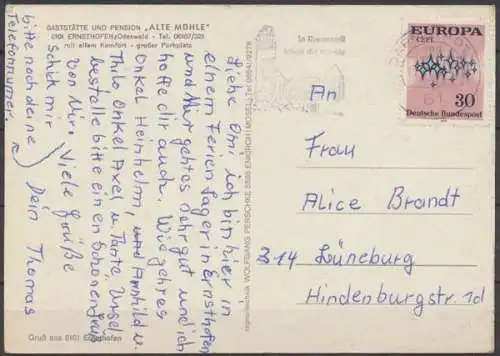 GASTSTÄTTE UND PENSION „ALTE MÜHLE"
6101 ERNSTHOFEN/Odenwald - Tel. 06167/328
mit allem Komfort - großer Parkplatz
Liebe Omi ich bin hier in
einem Ferienlager in Ernsthofen
und Mir geht es Sehr gut und ich
hoffe dir auch. Wie geht es
Onkel Heinhelm, und Armhild u.
Thilo Onkel Axel u. Tante Ursel
bestelle bitte einen Schönen Gruß
Von Mir Viele Grüße
Schick mir Dein Thomas
bitte noch deine
Telefonnummer.
Gruß aus 6101 Ernsthofen
WOLFGANG PERSCHKE 6556
EUROPA
CEPT
30
Deutsche Bundespost
An
Frau
Alice Brandt
314 Lüneburg
Hindenburgstr. 1d